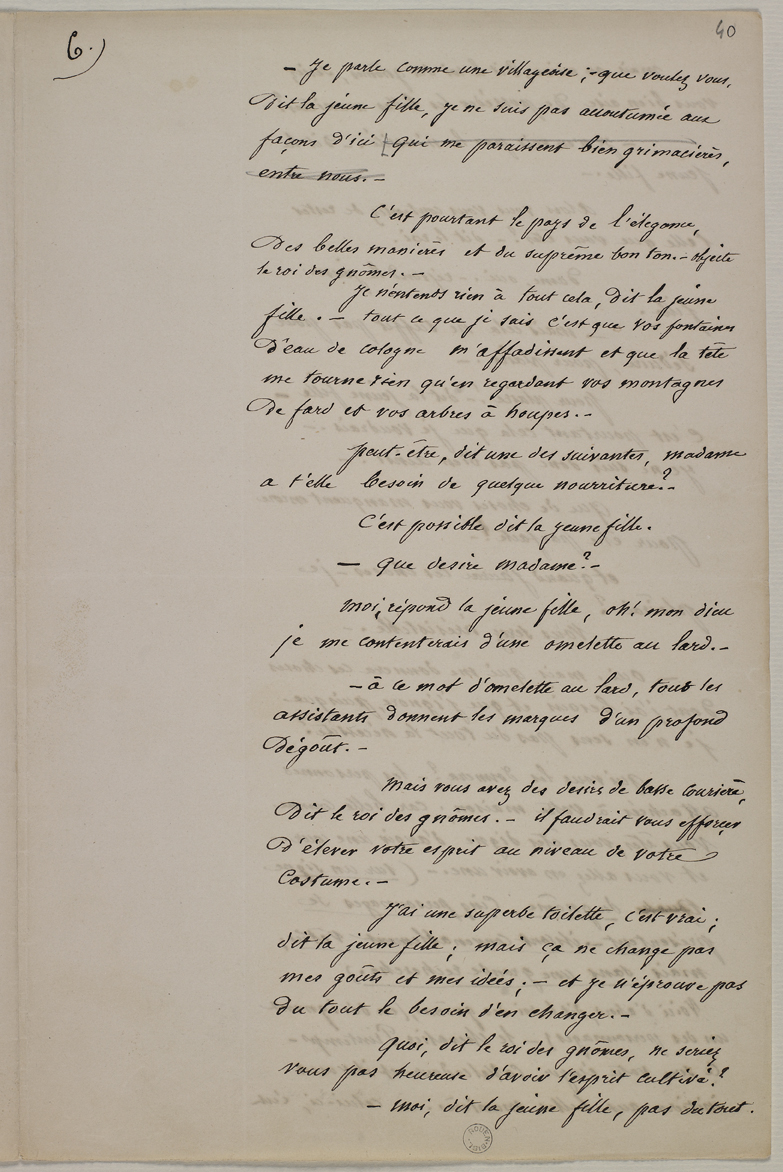 6.)
40
— Je parle comme une villageoise ; - que voulez vous,
Dit la jeune fille, je ne suis pas accoutumée aux
façons d'ici [qui me paraissent bien grimacières,
entre nous. —
C'est pourtant le pays de l'élégance,
Des belles manières et du suprême bon ton. — objecte
le roi des gnômes. —
Je n'entends rien à tout cela, dit la jeune
fille. — tout ce que je sais c'est que vos fontaines
D'eau de cologne m'affadissent et que la tête
me tourne rien qu'en regardant vos montagnes
De fard et vos arbres à houpes. —
peut-être, dit une des suivantes, madame
a t'elle besoin de quelque nourriture ? —
C'est possible dit la jeune fille.
— Que desire madame ? —
moi, répond la jeune fille, oh ! mon dieu
je me contenterais d'une omelette au lard. —
— à ce mot d'omelette au lard, tous les
assistants donnent les marques d'un profond
Dégoût. —
mais vous avez des desirs de basse courière,
Dit le roi des gnômes. — il faudrait vous efforcer
D'élever votre esprit au niveau de votre
Costume. —
J'ai une superbe toilette, c'est vrai ;
dit la jeune fille ; mais ça ne change pas
mes goûts et mes idées ; — et je n'éprouve pas
Du tout le besoin d'en changer. —
Quoi, dit le roi des gnômes, ne seriez
vous pas heureuse d'avoir l'esprit cultivé ?
— moi, dit la jeune fille, pas du tout.